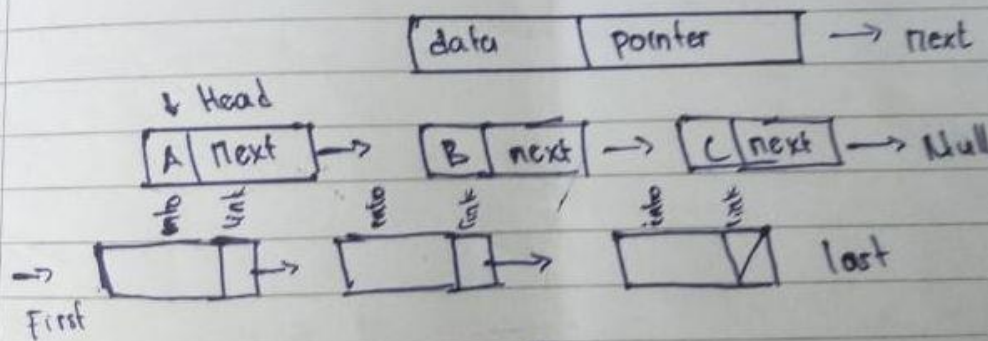 data pointer → next
↓ Head
A next → B next → C next → Null
info link info link info link
→ → → last
First